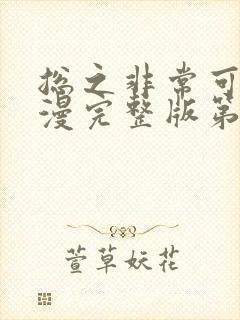 总之非常可
漫完整版第
萱草妖花